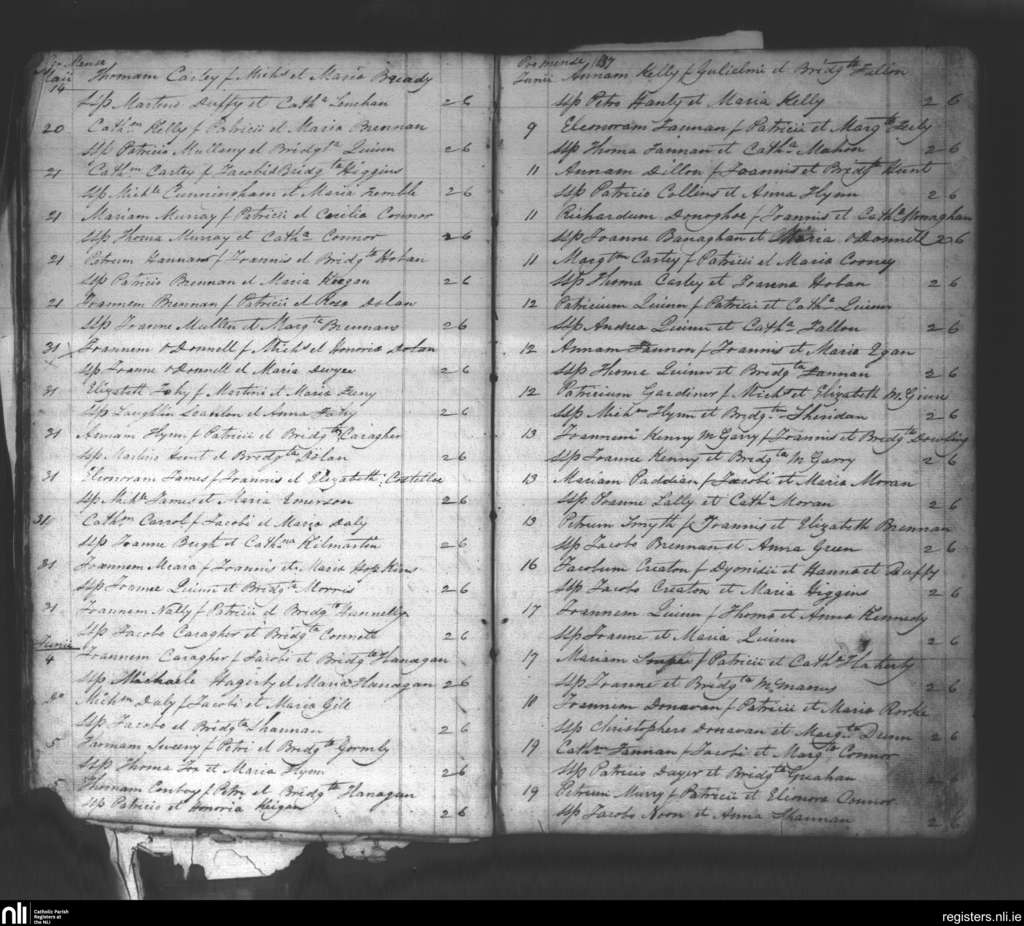 Pro Mense
Maii Thomam Carley f Michs et Maria Bready
14
Ssp Martino Duffy et Catha Linehan 2 6
20 Cathm Kelly f Patricii et Maria Brennan
Ssp Patricio Mullany et Bridgta Quinn 2 6
21 Cathm Carley f Jacobi et Bridgta Higgins
Ssp Michle Cunningham et Maria 2 6
21 Mariam Murray f Patricii et Cecilia Connor
Ssp Thoma Murray et Catha Connor 2 6
21 Petrum Hannan f Joannis et Bridgta Hoban
Ssp Patricio Brennan et Maria Keegan 2 6
21 Joannem Brennan f Patricii et Rosa Dolan
Ssp Joanne Mullen et Margta Brennan 2 6
31 Joannem O Donnell f Michs et Honoria Dolan
Ssp Joanne O Donnell et Maria Dwyer 2 6
31 Elizabeth f Martini et Maria Feny
Ssp Laughlin Scanlon et Anna 2 6
31 Annam Flynn f Patricii et Bridgta Caragher
Ssp Martino Hunt et Bridgta Dolan 2 6
31 Eleonoram James f Joannis et Elizabeth Costelloe
Ssp Michle James et Maria Emerson 2 6
31 Cathm Carrol f Jacobi et Maria Daly
Ssp Joanne Beegh et Cathna Kilmartin 2 6
31 Joannem Meara f Joannis et Maria Hopkins
Ssp Joanne Quinn et Bridgta Morris 2 6
31 Joannem Nally f Patricii et Bridgta
Ssp Jacobo Caragher et Bridgta Connell 2 6
Junii
4 Joannem Caragher f Jacobi et Bridgta Hanagan
Ssp Michaele Hagerty et Maria Hanagan 2 6
Michm Daly f Jacobi et Maria Gill
Ssp Jacobo et Bridgta Shannan 2 6
5 Sweeny f Petri et Bridgta Gormly
Ssp Thoma Fox et Maria Flynn 2 6
Thomam Conboy f Petri et Bridgta Hanagan
Ssp Patricio et Honoria Keigan 2 6
Pro mense 1837
Junii Annam Kelly f Gulielmi et Bridgta Fallon
Ssp Petro Hanly et Maria Kelly 2 6
9 Eleonoram Fannan f Patricii et Margta Feely
Ssp Thoma Fannan et Catha Mahon 2 6
11 Annam Dillon f Joannis et Bridgta Hunt
Ssp Patricio Collins et Anna Flynn 2 6
11 Richardum Donoghoe f Joannis et Catha Monaghan
Ssp Joanne Banaghan et Maria O Donnell 2 6
11 Margtm Carley f Patricii et Maria Cooney
Ssp Thoma Carley et Joanna Hoban 2 6
12 Patricium Quinn f Patricii et Catha Quinn
Ssp Andrea Quinn et Catha Fallon 2 6
12 Annam Fannon f Joannis et Maria Egan
Ssp Thoma Quinn et Bridgta Fannan 2 6
12 Patricium Gardiner f Michs et Elizabeth McGuire
Ssp Michle Flynn et Bridgta Sheridan 2 6
13 Joannem Kenny McGarry f Joannis et Bridgta Dowling
Ssp Joanne Kenny et Bridgta McGarry 2 6
13 Mariam Paddian f Jacobi et Maria Moran
Ssp Joanne Lally et Catha Moran 2 6
13 Petrum Smyth f Joannis et Elizabeth Brennan
Ssp Jacobo Brennan et Anna Green 2 6
16 Jacobum Creaton f Dyonisii et Hanna et Duffy
Ssp Jacobo Creaton et Maria Higgins 2 6
17 Joannem Quinn f Thoma et Anna Kennedy
Ssp Joanne et Maria Quinn 2 6
17 Mariam f Patricii et Catha Flaherty
Ssp Joanne et Bridgta McManus 2 6
18 Joannem Donavan f Patricii et Maria Rorke
Ssp Christophero Donavan et Margta Dunn 2 6
19 Cathm Fannan f Jacobi et Margta Connor
Ssp Patricio Dwyer et Bridgta Guahan 2 6
19 Petrum Murry f Patricii et Elionora Connor
Ssp Jacobo Noon et Anna Shannan 2 6
nli Catholic Parish
Registers at
the NLI
registers.nli.ie